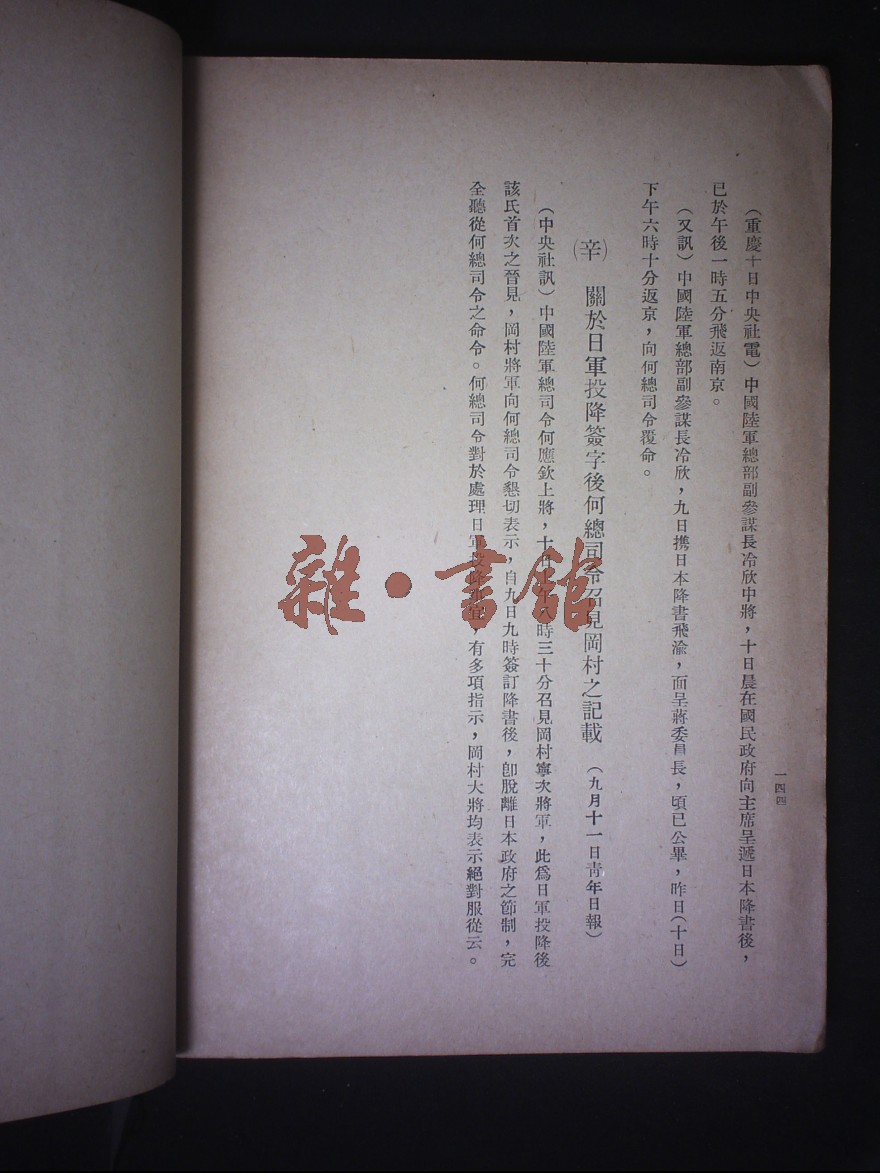 (重慶十日中央社電)中國陸軍總部副參謀長冷欣中將,十日晨在國民政府向主席呈遞日本降書後,
已於午後一時五分飛返南京。
(又訊)中國陸軍總部副參謀長冷欣,九日携日本降書飛渝,面呈蔣委員長,頃已公畢,昨日(十日)
下午六時十分返京,向何總司令覆命。
(辛) 關於日軍投降簽字後何總司令召見岡村之記載 (九月十一日青年日報)
(中央社訊)中國陸軍總司令何應欽上將,十時三十分召見岡村寧次將軍,此爲日軍投降後
該氏首次之晉見,岡村將軍向何總司令懇切表示,自九日九時簽訂降書後,卽脫離日本政府之節制,完
全聽從何總司令之命令。何總司令對於處理日軍投降事宜,有多項指示,岡村大將均表示絕對服從云。
一四四
雜·書館